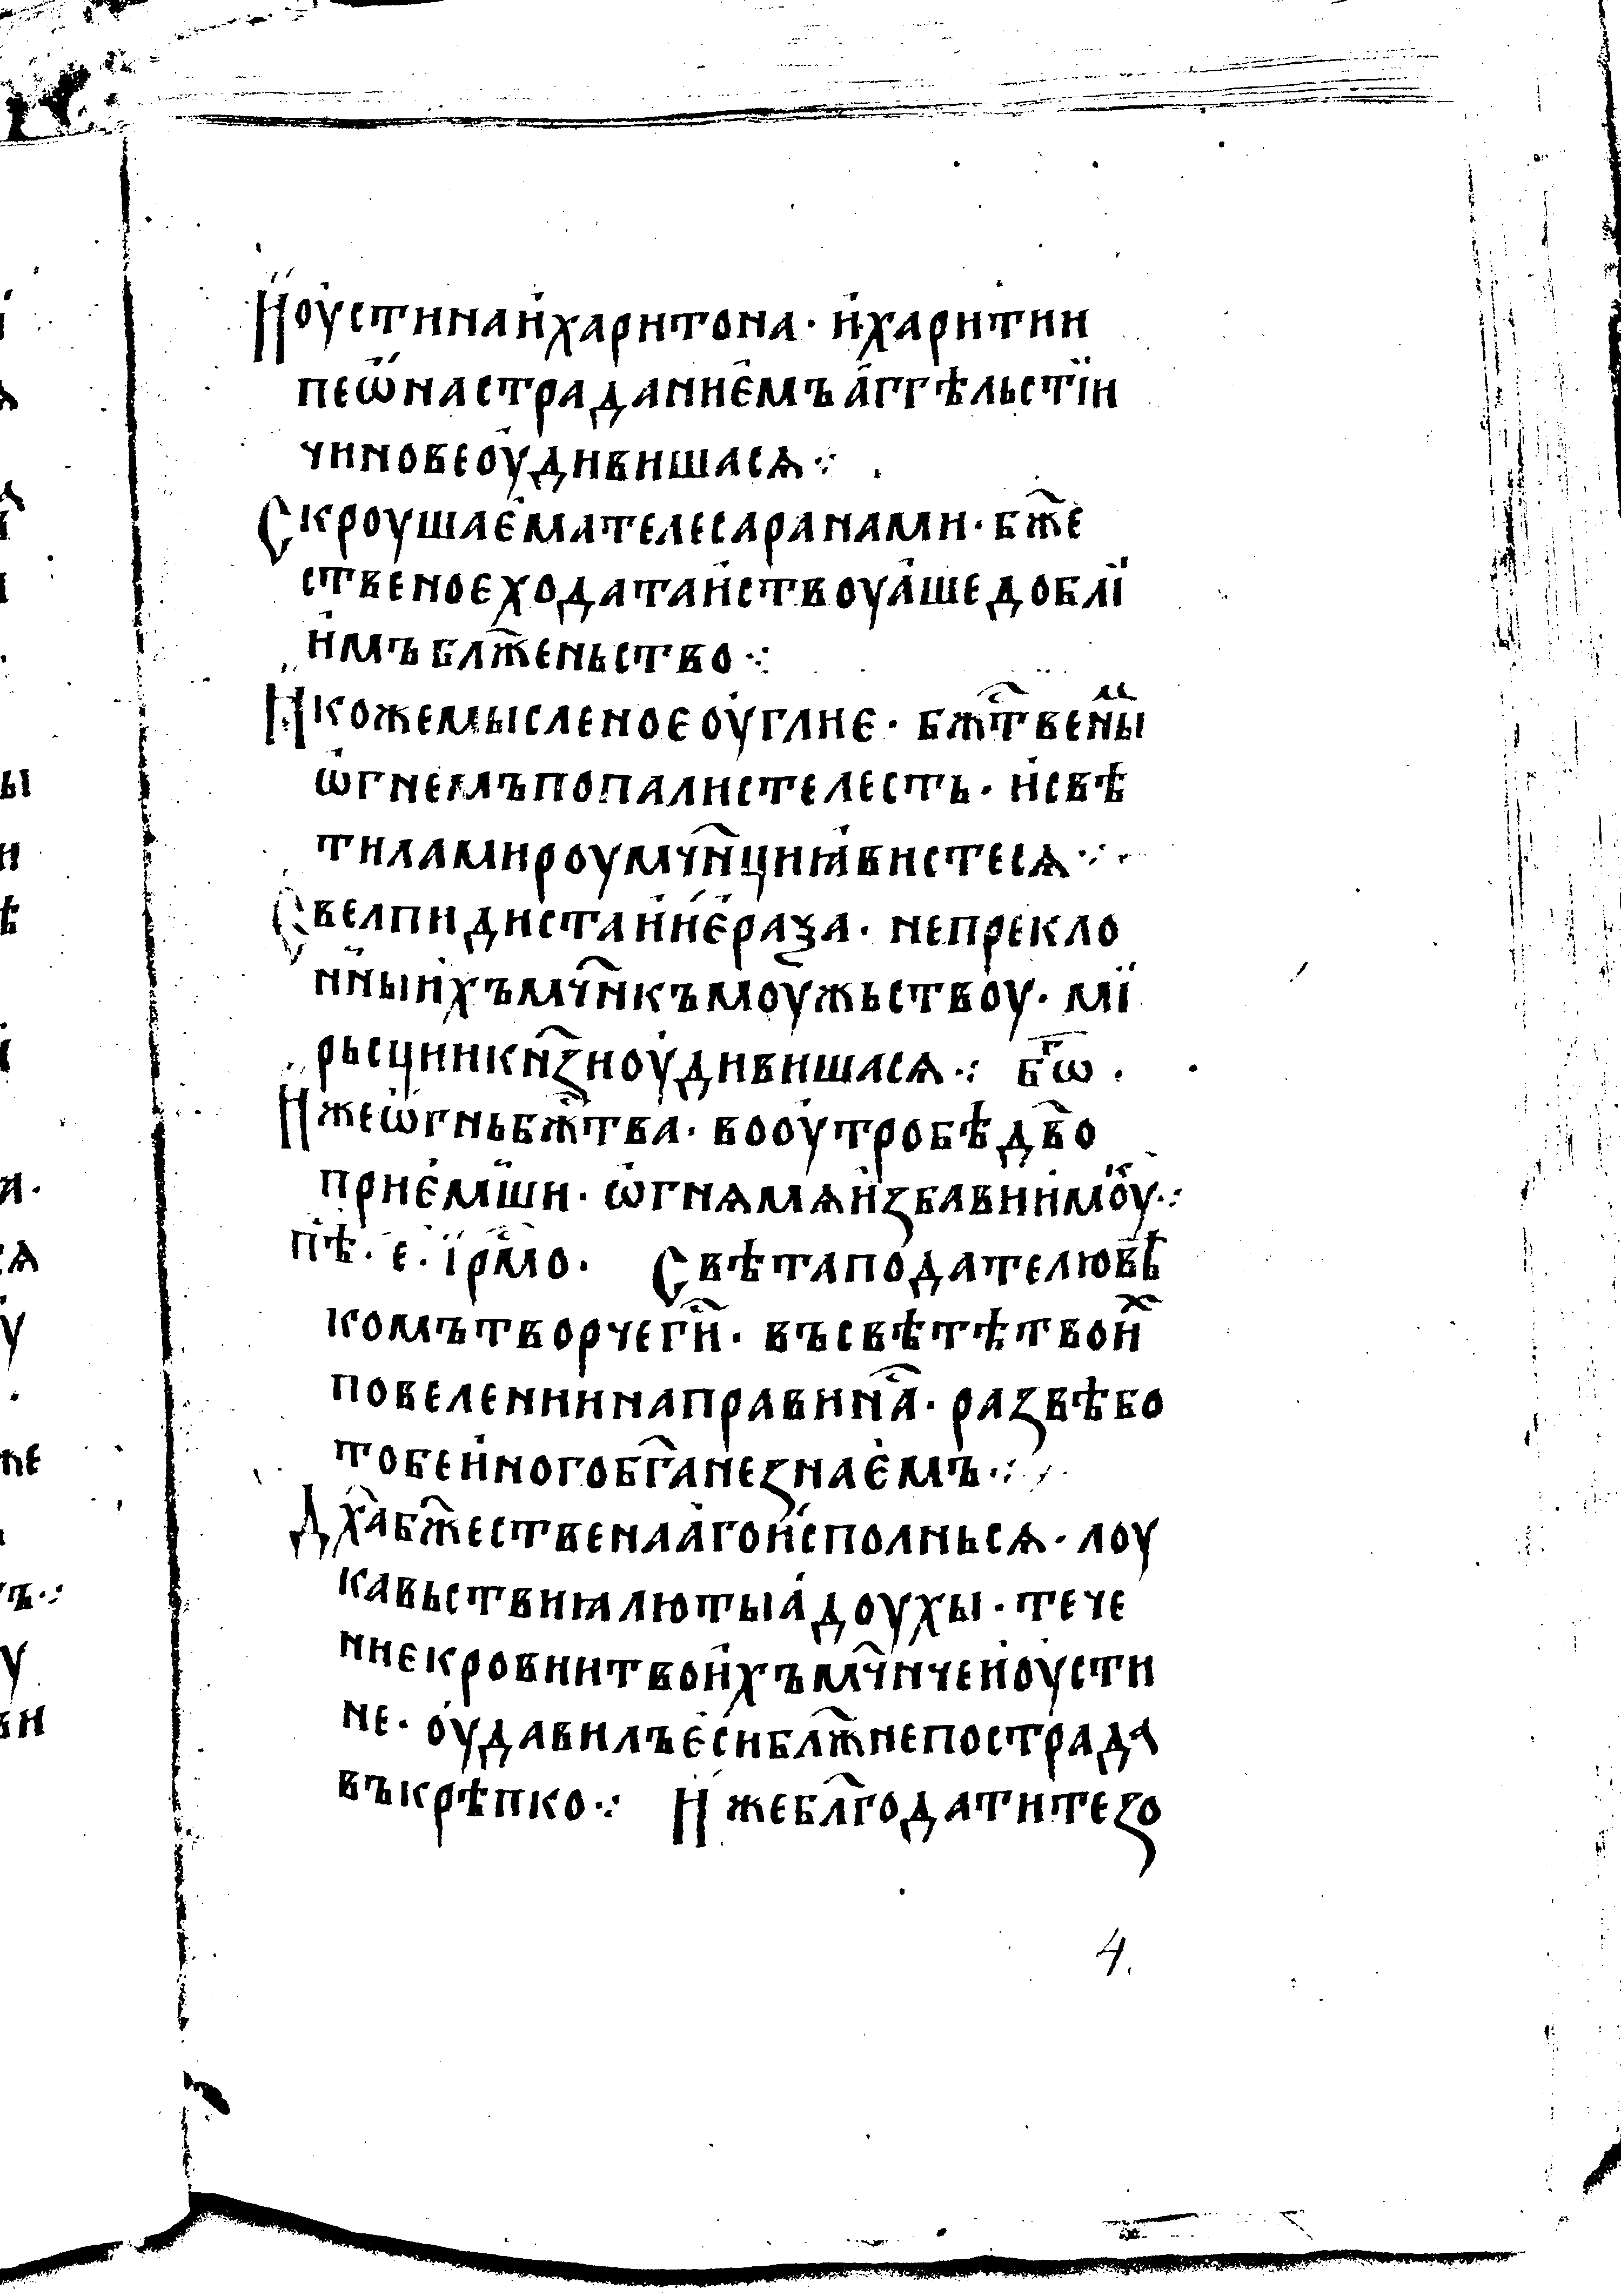 Иоустина и҆харитона · и҆харитии
пеѡ҆на страданиемъ а҆ггѣльстїи
чинове оудивишасѧ ⁘
Скроушаема телеса ранами · бж҃е
ственое ходатаи҆ствоуа҆ше доблї
и҆мъ блж҃еньство ⁘
Икоже мысленое оуглие · бж҃твены
ѡ҆гнемъ попалисте лесть · и҆свѣ
тила мироу мч҃нци ꙗ҆вистесѧ ⁘
С велпидиста и҆ и҆ераѯа · непрекло
нныи҆хъ мч҃нкъ моужьствоу · мї
рьсции кн҃ꙁи оудивишасѧ ⁘ бг҃ѡ ·
Иже ѡ҆гнь бж҃тва · во оутробѣ дв҃о
прие҆мши · ѡ҆гнѧ мѧ и҆ꙁбави имоу ⁘
пѣ · е · їрмо · Свѣта подателю вѣ
комъ творче г҃и · въ свѣтѣ твои
повелении направи на҃ · раꙁвѣ бо
тобе и҆ного бг҃а не ꙁнае҆мъ ⁘
Дх҃а бж҃ествена а҆гои҆сполньсѧ · лоу
кавьствиꙗ лютыа҆ доухы · тече
ние кровии твои҆хъ мч҃нче и҆оусти
не · оудавилъ е҆си блж҃не пострада
въ крѣпко ⁘ Иже блг҃одати теꙁо
4.